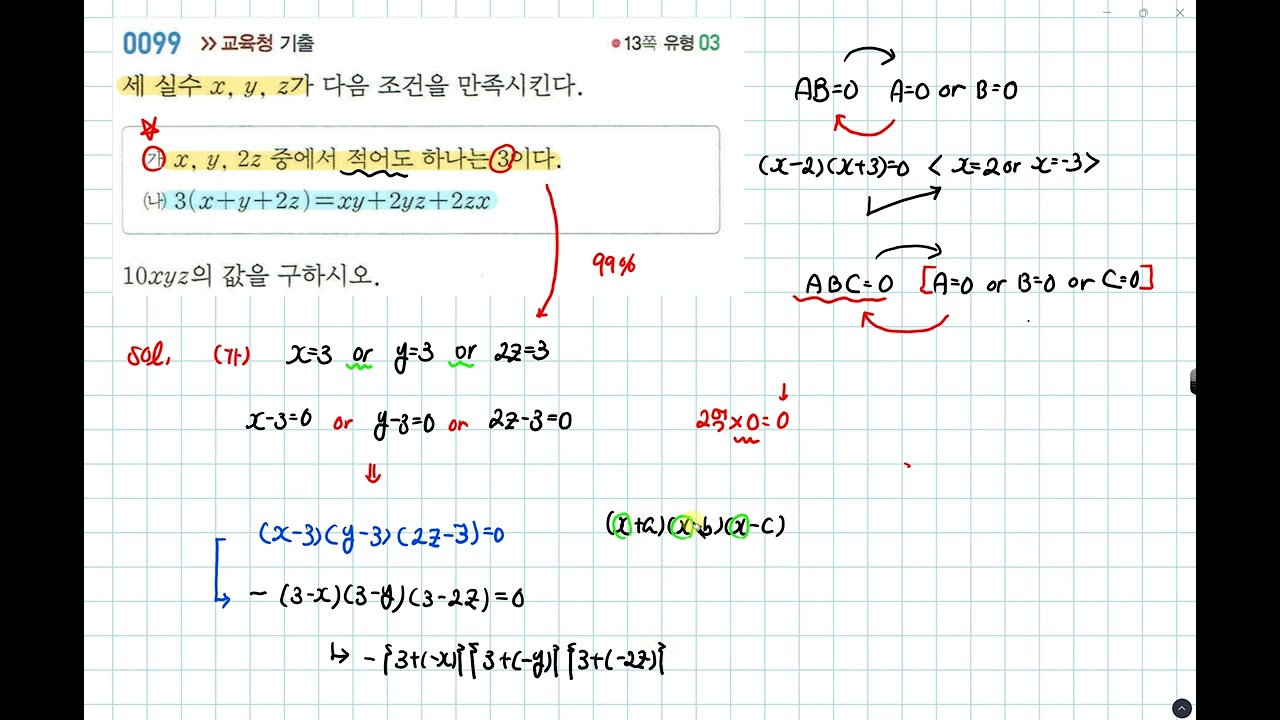 0099 ≫교육청 기출 • 13쪽 유형 03
세 실수 x, y, z가 다음 조건을 만족시킨다.
㈎ x, y, 2z 중에서 적어도 하나는 3이다.
㈏ 3(x+y+2z)=xy+2yz+2zx
10xyz의 값을 구하시오.
99%
AB=0 A=0 or B=0
(x-2)(x+3)=0 < x=2 or x=-3 >
ABC=0 [A=0 or B=0 or C=0]
sol. (가) x=3 or y=3 or 2z=3
x-3=0 or y-3=0 or 2z-3=0
×0=0
⇓
(x-3)(y-3)(2z-3)=0
(x+a)(x-b)(x-c)
- (3-x)(3-y)(3-2z)=0
↳ -{3+(-x)}{3+(-y)}{3+(-2z)}